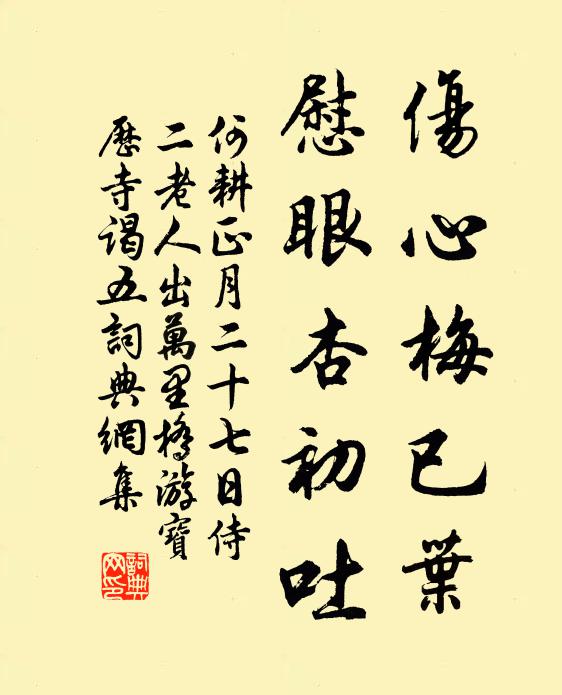 傷心梅已葉
慰眼杏初吐
何耕正月二十七日侍
二老人出萬里橋游寶
歷寺謁五詞典網集
詞典
网印